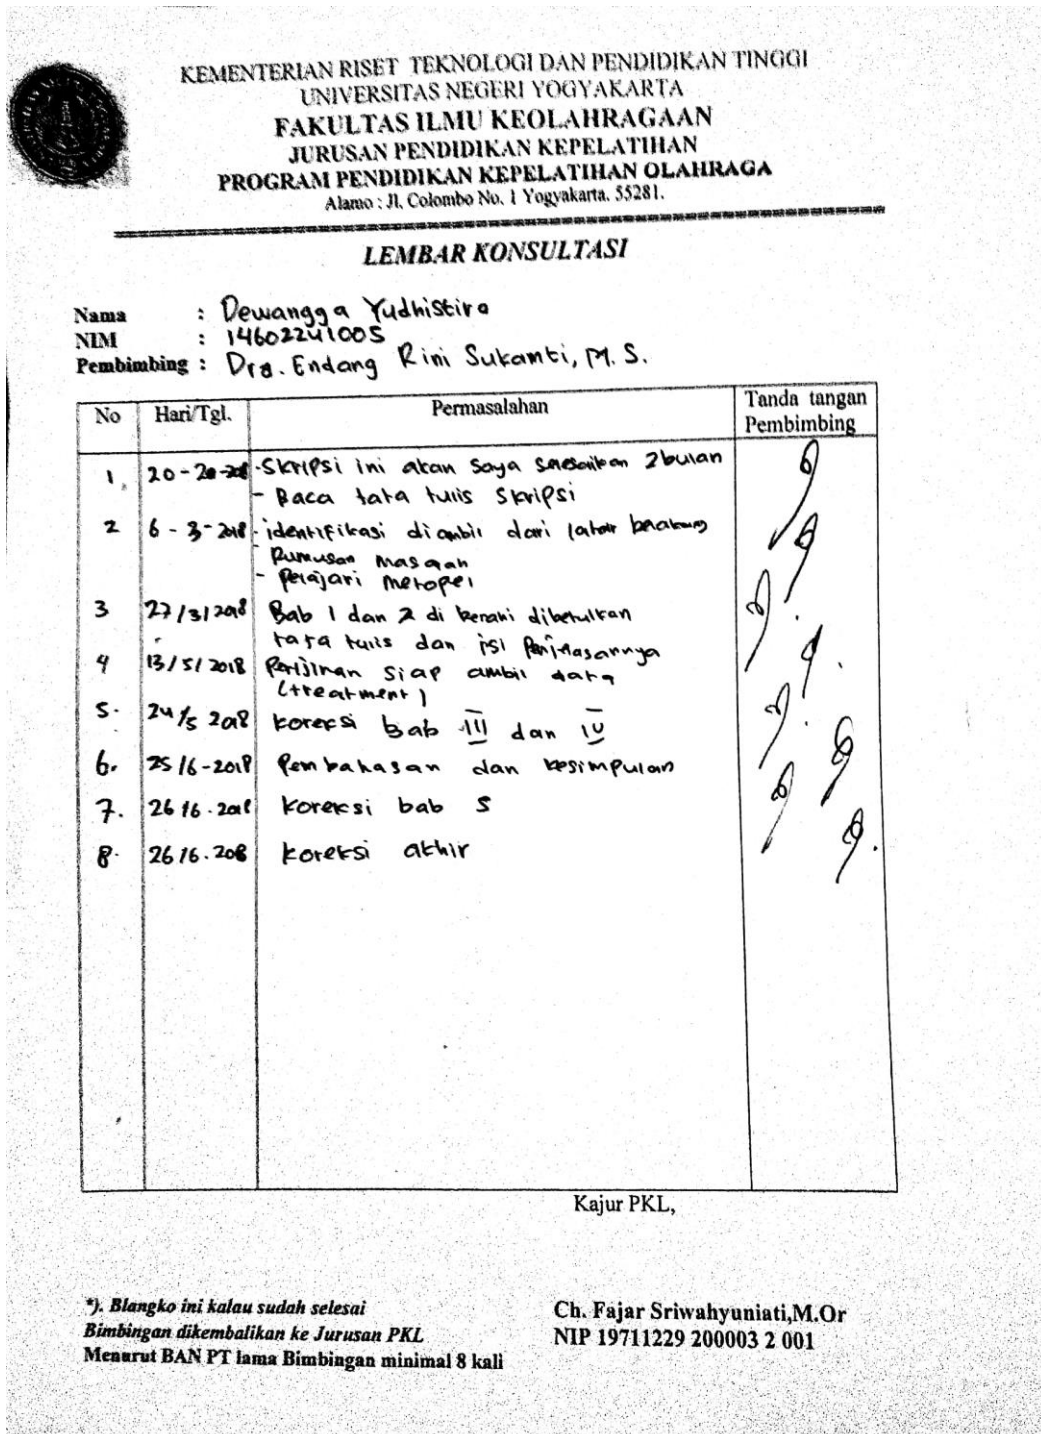 KEMENTERIAN RISET TEKNOLOGI DAN PENDIDIKAN TINGGI
UNIVERSITAS NEGERI YOGYAKARTA
FAKULTAS ILMU KEOLAHRAGAAN
JURUSAN PENDIDIKAN KEPELATIHAN
PROGRAM PENDIDIKAN KEPELATIHAN OLAHRAGA
Alamo : Jl. Colombo No. 1 Yogyakarta. 55281.
LEMBAR KONSULTASI
Nama : Dewangga Yudhistira
NIM : 14602241005
Pembimbing : Dra. Endang Rini Sukamti, M. S.
No Hari/Tgl. Permasalahan Tanda tangan
Pembimbing
1. 20-20-2018 - Skripsi ini akan saya selesaikan 2 bulan
- Baca tata tulis Skripsi
2 6-3-2018 - identifikasi diambil dari latar belakang
Rumusan masalah
- Pelajari metopel
3 27/3/2018 Bab 1 dan 2 di dibetulkan
tata tulis dan isi Penjelasannya
4 13/5/2018 Perijinan siap ambil data
(treatment)
5. 24/5 2018 koreksi bab III dan IV
6. 25/6-2018 Pembahasan dan kesimpulan
7. 26/6.2018 koreksi bab 5
8. 26/6.2018 koreksi akhir
Kajur PKL,
*). Blangko ini kalau sudah selesai
Bimbingan dikembalikan ke Jurusan PKL
Menurut BAN PT lama Bimbingan minimal 8 kali
Ch. Fajar Sriwahyuniati,M.Or
NIP 19711229 200003 2 001